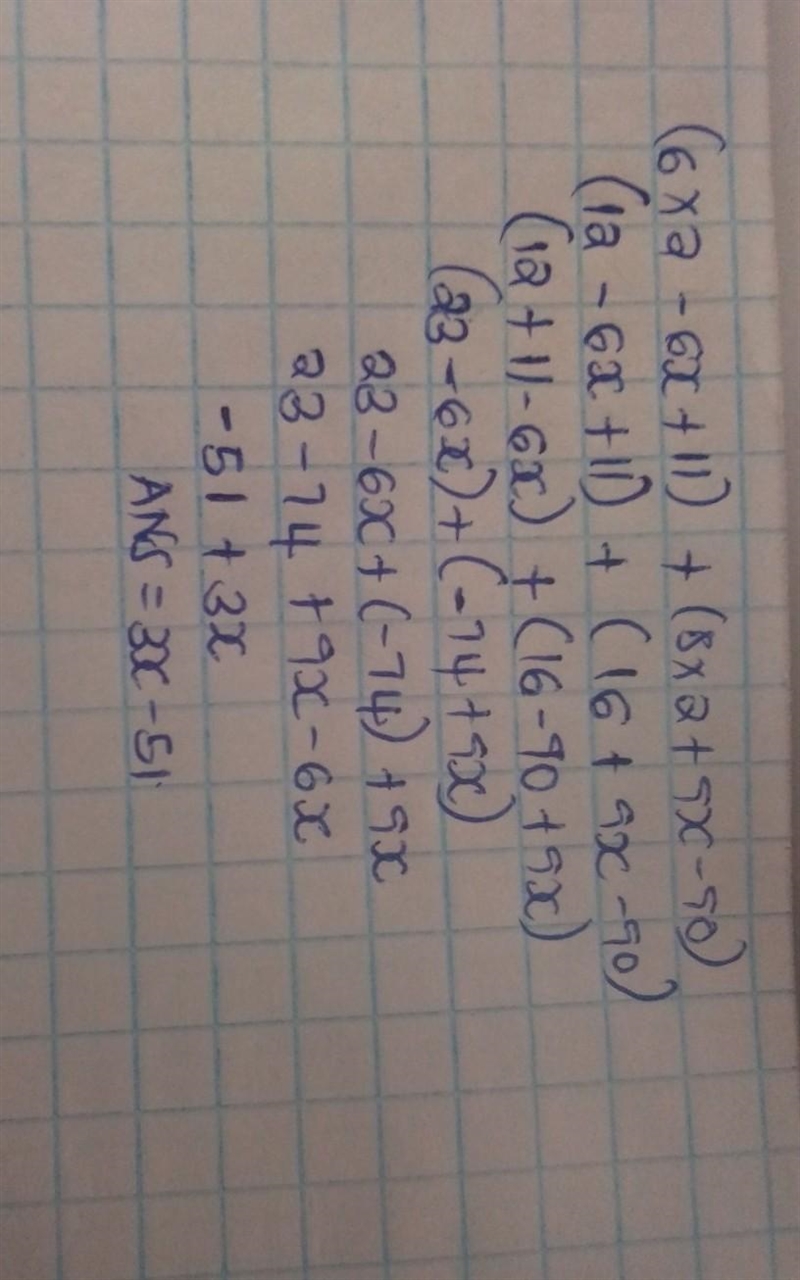 (6×2 - 6x + 11) + (8×2 + 9x - 90)
(12 - 6x + 11) + (16 + 9x - 90)
(12 + 11 - 6x) + (16 - 90 + 9x)
(23 - 6x) + (-74 + 9x)
23 - 6x + (-74) + 9x
23 - 74 + 9x - 6x
-51 + 3x
ANS = 3x - 51